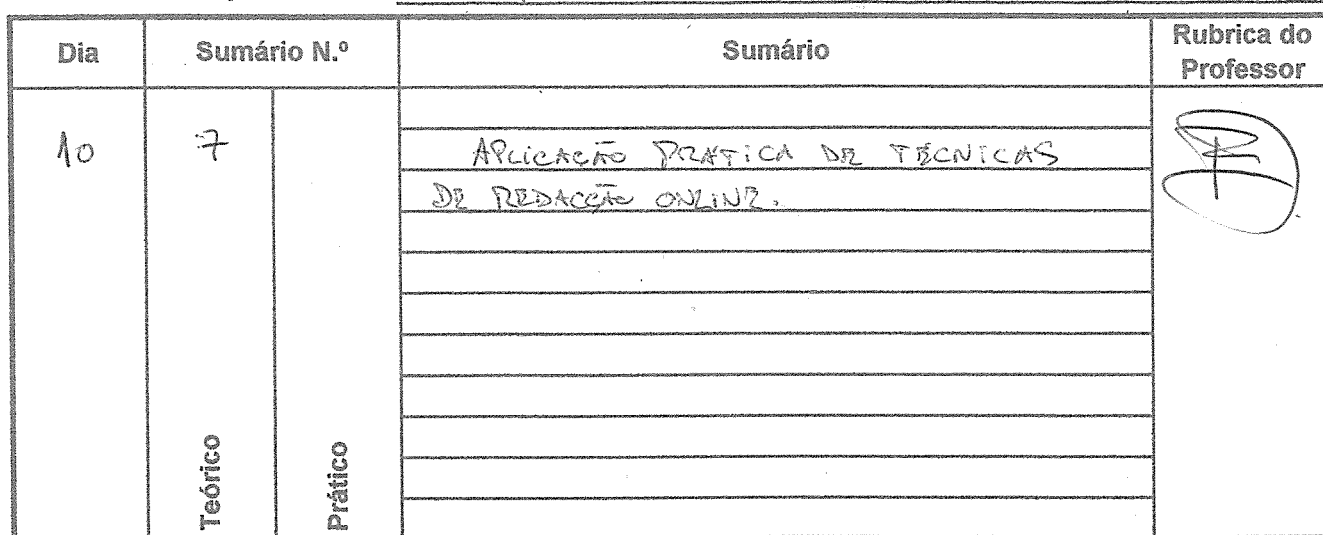 Dia Sumário N.º Sumário Rubrica do
Professor
10 7 APLICAÇÃO PRÁTICA DE TÉCNICAS
DE REDACÇÃO ONLINE.
Teórico Prático